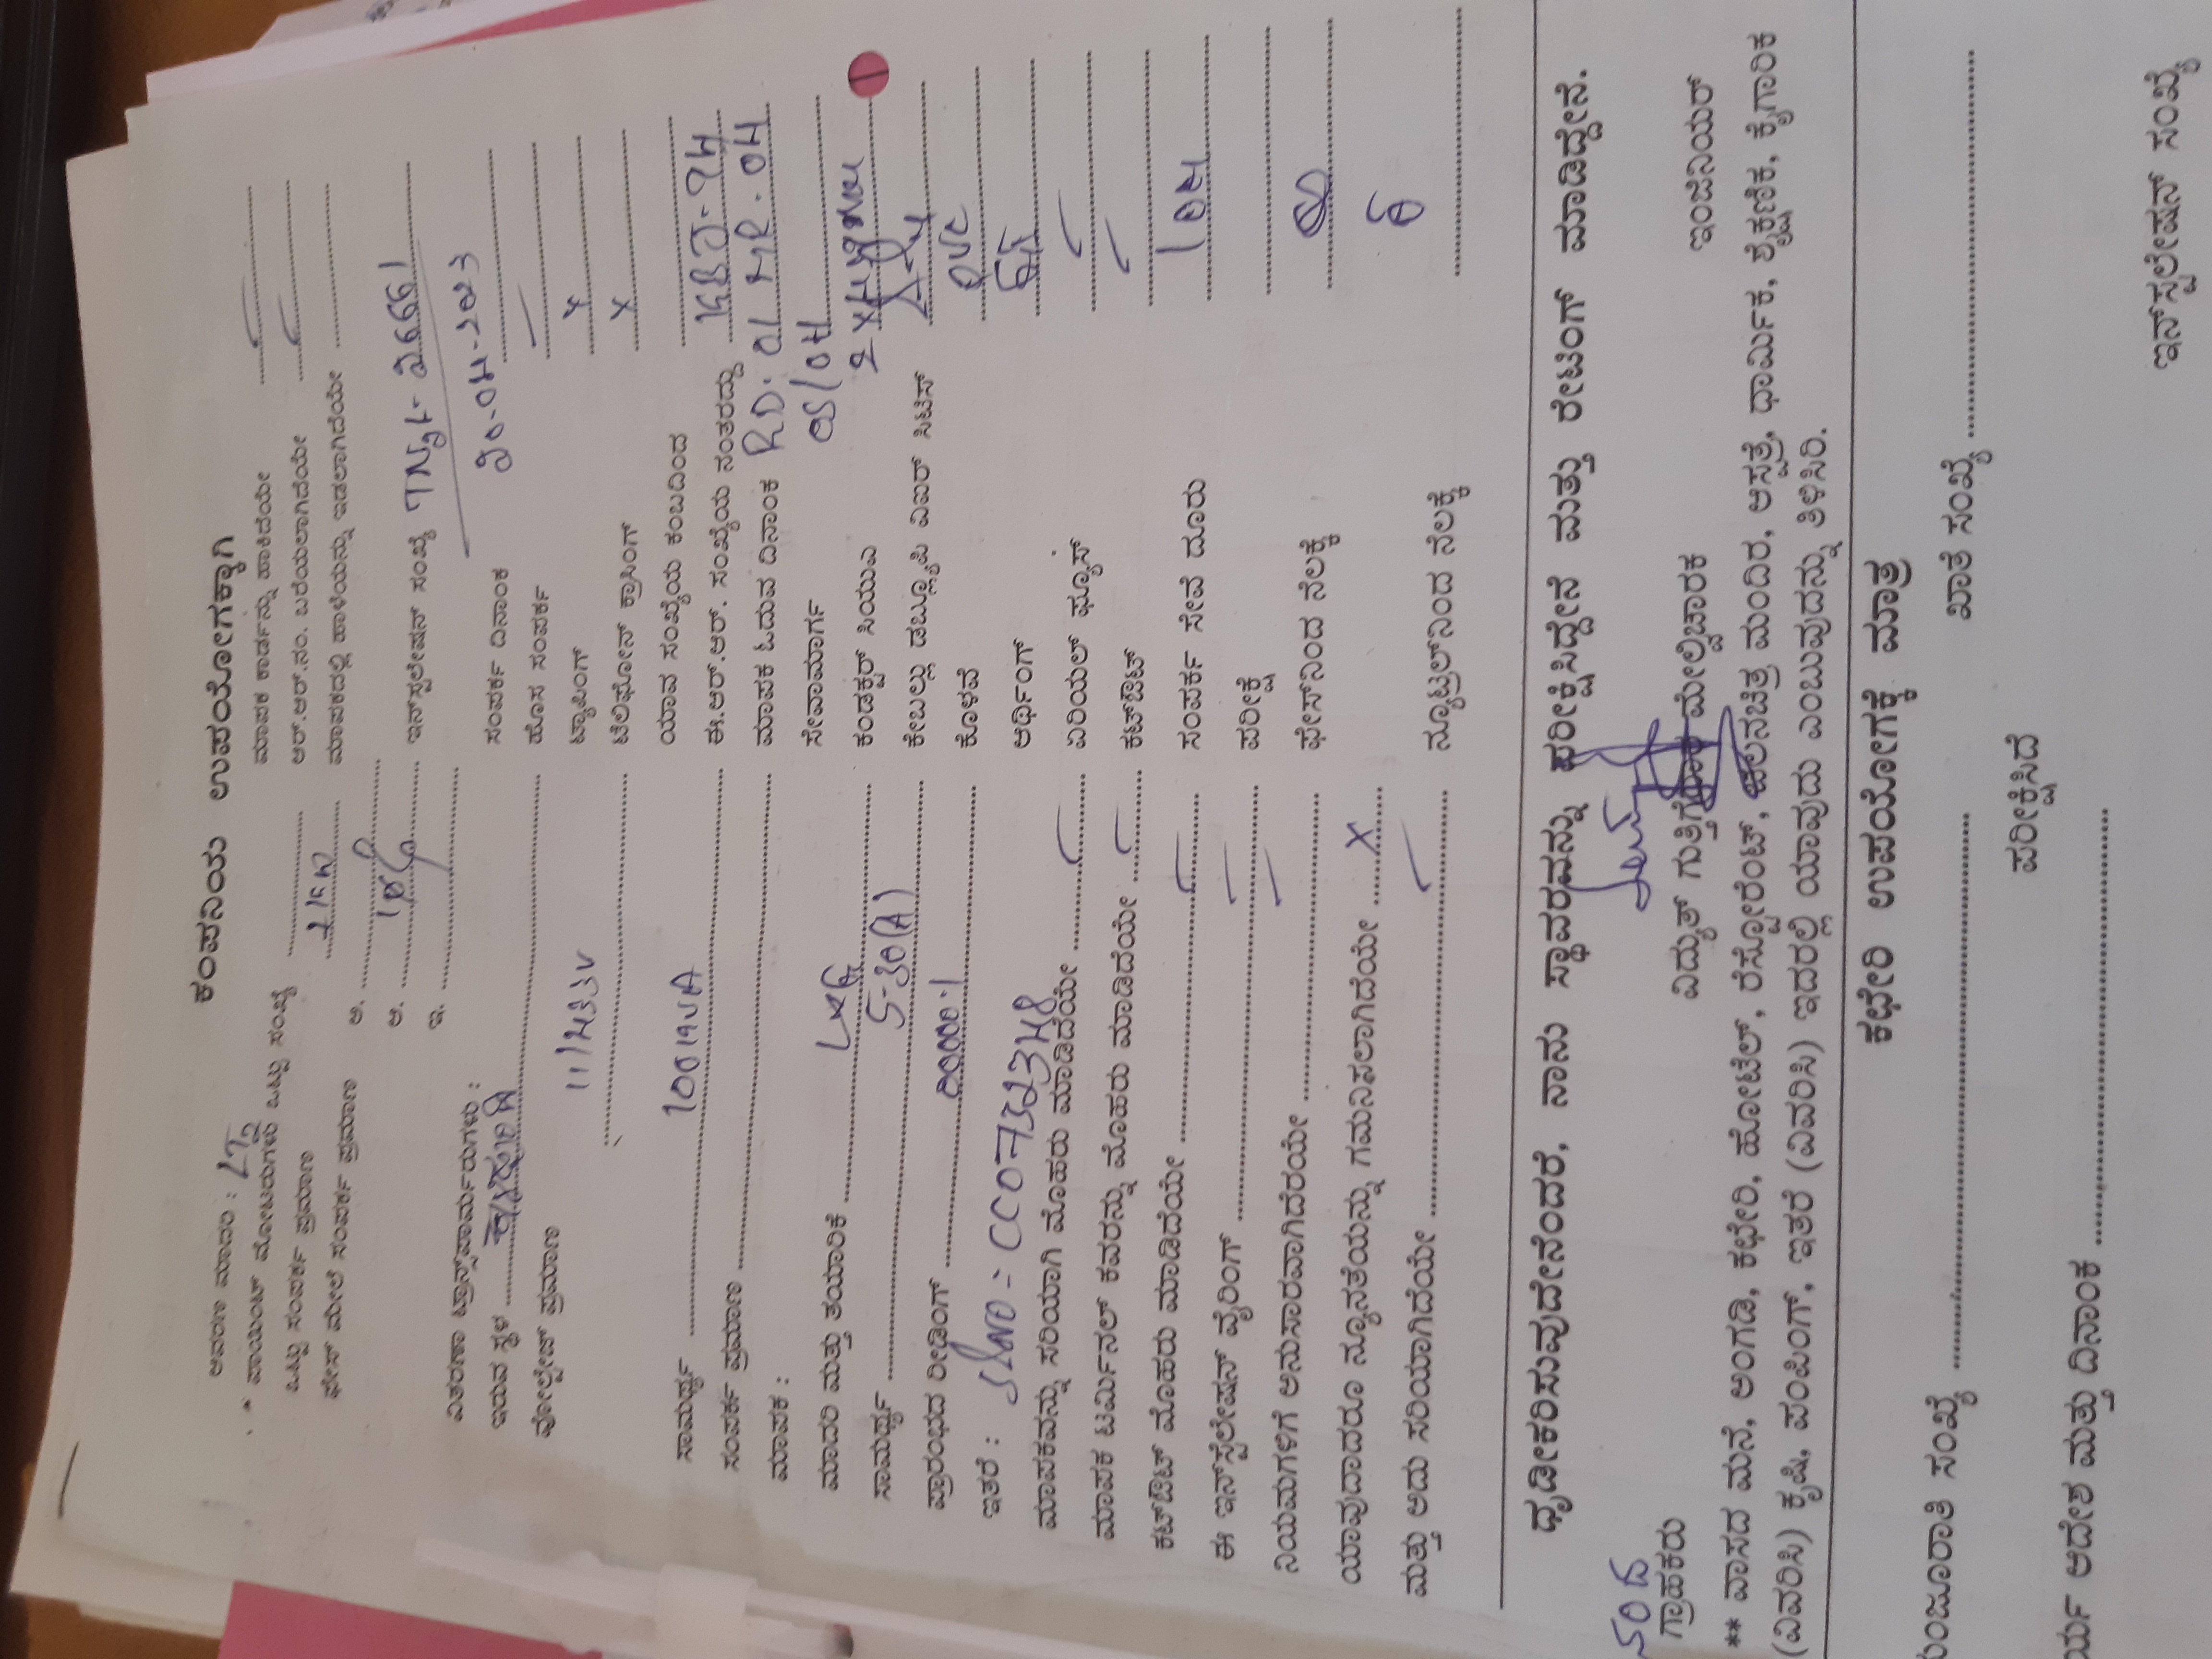 ಕಂಪನಿಯ ಉಪಯೋಗಕ್ಕಾಗಿ
ಆವರಣ ಮಾದರಿ : LT2
* ಪಾಯಿಂಟ್ ಮೋಟರುಗಳು ಒಟ್ಟು ಸಂಖ್ಯೆ
ಒಟ್ಟು ಸಂಪರ್ಕ ಪ್ರಮಾಣ
ಫೇಸ್ ಮೇಲೆ ಸಂಪರ್ಕ ಪ್ರಮಾಣ ಅ.
ಆ.
ಇ.
ವಿತರಣಾ ಟ್ರಾನ್ಸ್‌ಫಾರ್ಮರುಗಳು :
ಇರುವ ಸ್ಥಳ
ವೋಲ್ಟೇಜ್ ಪ್ರಮಾಣ 11/433V
ಸಾಮರ್ಥ್ಯ 100 KVA
ಸಂಪರ್ಕ ಪ್ರಮಾಣ
ಮಾಪಕ :
ಮಾದರಿ ಮತ್ತು ತಯಾರಿಕೆ L&G
ಸಾಮರ್ಥ್ಯ 5-30(A)
ಪ್ರಾರಂಭದ ರೀಡಿಂಗ್ 00000.1
ಇತರೆ :
ಮಾಪಕವನ್ನು ಸರಿಯಾಗಿ ಮೊಹರು ಮಾಡಿದೆಯೇ
ಮಾಪಕ ಟರ್ಮಿನಲ್ ಕವರನ್ನು ಮೊಹರು ಮಾಡಿದೆಯೇ
ಕಟ್‌ಔಟ್ ಮೊಹರು ಮಾಡಿದೆಯೇ
ಈ ಇನ್‌ಸ್ಟಲೇಷನ್ ವೈರಿಂಗ್
ನಿಯಮಗಳಿಗೆ ಅನುಸಾರವಾಗಿದೆರಯೇ
ಯಾವುದಾದರೂ ನ್ಯೂನತೆಯನ್ನು ಗಮನಿಸಲಾಗಿದೆಯೇ X
ಮತ್ತು ಅದು ಸರಿಯಾಗಿದೆಯೇ
ಮಾಪಕ ಕಾರ್ಡನ್ನು ಹಾಕಿದೆಯೇ
ಆರ್.ಆರ್.ನಂ. ಬರೆಯಲಾಗಿದೆಯೇ
ಮಾಪಕದಲ್ಲಿ ಹಾಳೆಯನ್ನು ಇಡಲಾಗಿದೆಯೇ
ಇನ್‌ಸ್ಟಲೇಷನ್ ಸಂಖ್ಯೆ
ಸಂಪರ್ಕ ದಿನಾಂಕ 20-04-2023
ಹೊಸ ಸಂಪರ್ಕ
ಟ್ಯಾಪಿಂಗ್ X
ಟೆಲಿಫೋನ್ ಕ್ರಾಸಿಂಗ್ X
ಯಾವ ಸಂಖ್ಯೆಯ ಕಂಬದಿಂದ
ಈ.ಆರ್.ಆರ್. ಸಂಖ್ಯೆಯ ನಂತರದ್ದು
ಮಾಪಕ ಓದುವ ದಿನಾಂಕ RD: 01 MR-04
ಸೇವಾಮಾರ್ಗ
ಕಂಡಕ್ಟರ್ ಸಿಯುಎ
ಕೇಬಲ್ಲು ಡಬ್ಲ್ಯೂಪಿ ಎಐರ್ ಸಿಟಿಸ್
ಕೊಳವೆ PVC
ಅರ್ಥಿಂಗ್
ಏರಿಯಲ್ ಫ್ಯೂಸ್
ಕಟ್‌ಔಟ್
ಸಂಪರ್ಕ ಸೇವೆ ದೂರು
ಪರೀಕ್ಷೆ
ಫೇಸ್‌ನಿಂದ ನೆಲಕ್ಕೆ
ನ್ಯೂಟ್ರಲ್‌ನಿಂದ ನೆಲಕ್ಕೆ
ಧೃಡೀಕರಿಸುವುದೇನೆಂದರೆ, ನಾನು ಸ್ಥಾವರವನ್ನು ಪರೀಕ್ಷಿಸಿದ್ದೇನೆ ಮತ್ತು ರೇಟಿಂಗ್ ಮಾಡಿದ್ದೇನೆ.
ಗ್ರಾಹಕರು ವಿದ್ಯುತ್ ಗುತ್ತಿಗೆದಾರ ಮೇಲ್ವಿಚಾರಕ ಇಂಜಿನಿಯರ್
** ವಾಸದ ಮನೆ, ಅಂಗಡಿ, ಕಛೇರಿ, ಹೋಟೆಲ್, ರೆಸ್ಟೋರೆಂಟ್, ಚಲನಚಿತ್ರ ಮಂದಿರ, ಆಸ್ಪತ್ರೆ, ಧಾರ್ಮಿಕ, ಶೈಕ್ಷಣಿಕ, ಕೈಗಾರಿಕ
(ವಿವರಿಸಿ) ಕೃಷಿ, ಪಂಪಿಂಗ್, ಇತರೆ (ವಿವರಿಸಿ) ಇದರಲ್ಲಿ ಯಾವುದು ಎಂಬುವುದನ್ನು ತಿಳಿಸಿರಿ.
ಕಛೇರಿ ಉಪಯೋಗಕ್ಕೆ ಮಾತ್ರ
ಸಂಖ್ಯೆ ಖಾತೆ ಸಂಖ್ಯೆ
ಪರೀಕ್ಷಿಸಿದೆ
ಆದೇಶ ಮತ್ತು ದಿನಾಂಕ
ಇನ್‌ಸ್ಟಲೇಷನ್ ಸಂಖ್ಯೆ